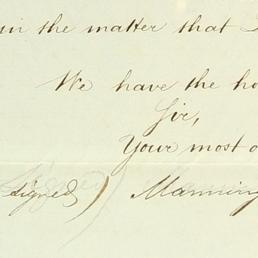 in the matter that
We have the ho
Sir,
Your most o
signed) Manning